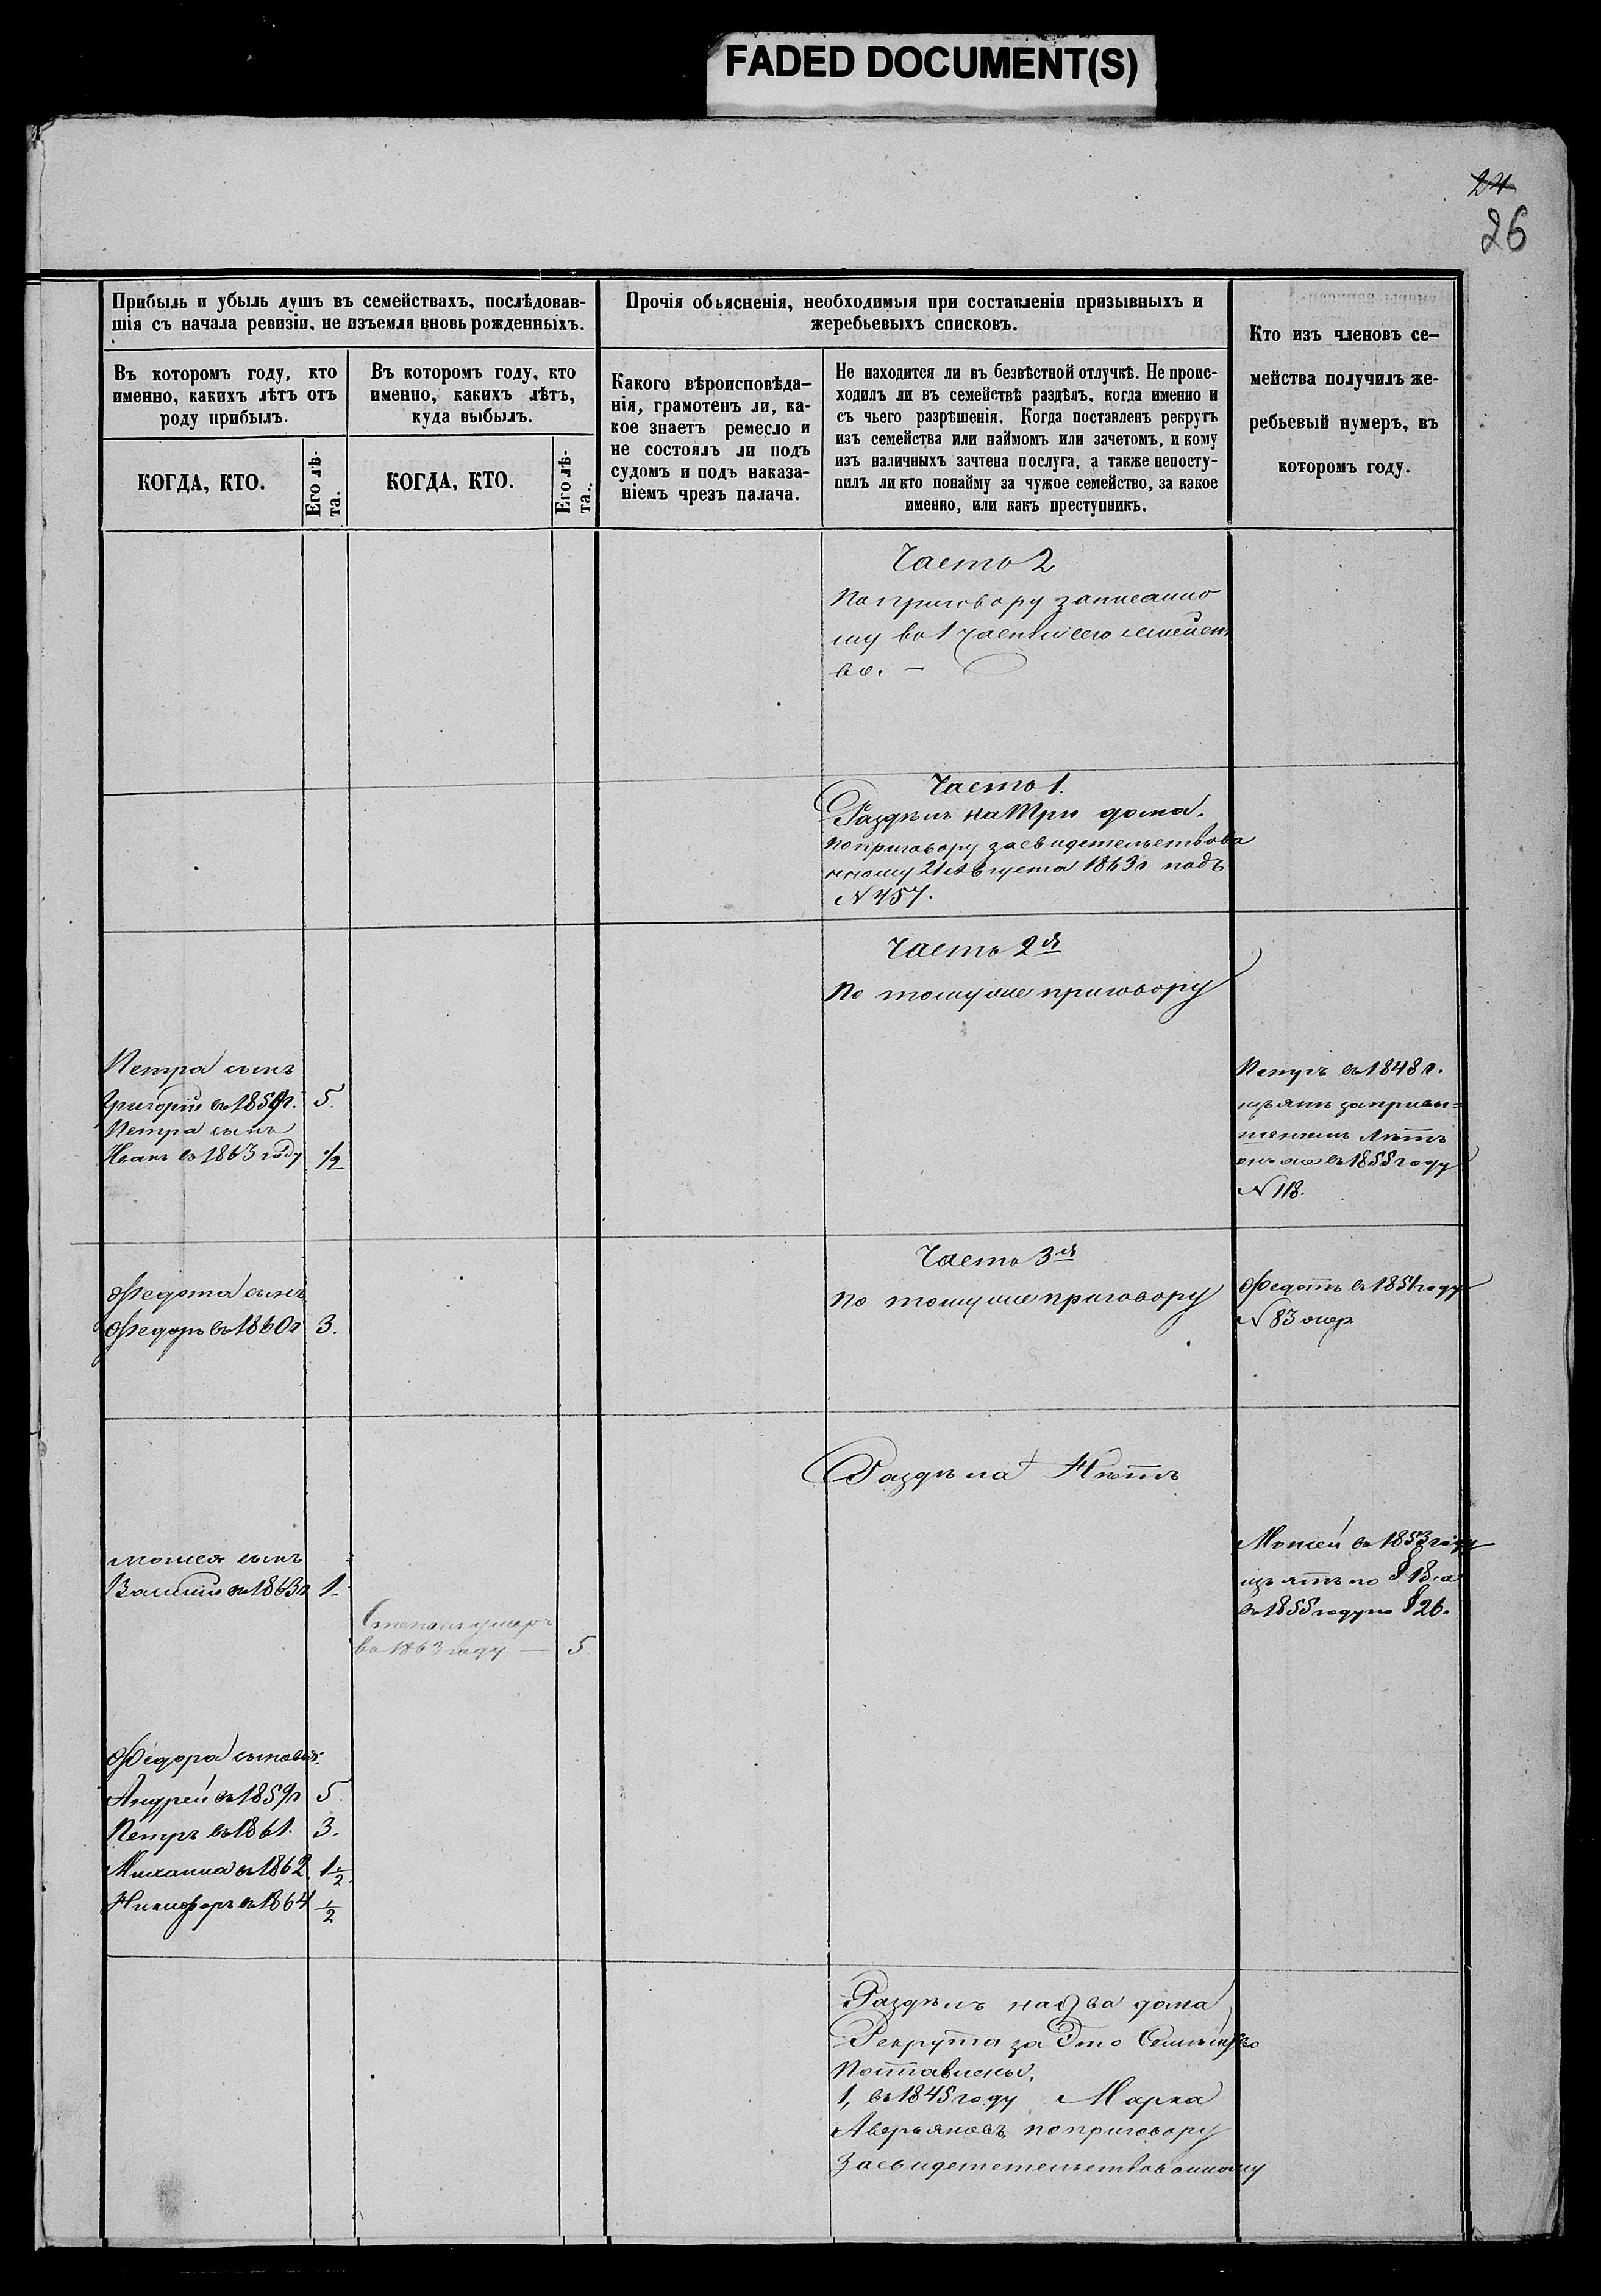 FADED DOCUMENT(S)
24
26
Прибыль и убыль душъ въ семействахъ, послѣдовав-
шія съ начала ревизіи, не изъемля вновь рожденныхъ.
Прочія объясненія, необходимыя при составленіи призывныхъ и
жеребьевыхъ списковъ.
Кто изъ членовъ се-
мейства получилъ же-
ребьевый нумеръ, въ
которомъ году.
Въ которомъ году, кто
именно, какихъ лѣтъ отъ
роду прибылъ.
Въ которомъ году, кто
именно, какихъ лѣтъ,
куда выбылъ.
Какого вѣроисповѣда-
нія, грамотенъ ли, ка-
кое знаетъ ремесло и
не состоялъ ли подъ
судомъ и подъ наказа-
ніемъ чрезъ палача.
Не находится ли въ безвѣстной отлучкѣ. Не проис-
ходилъ ли въ семействѣ раздѣлъ, когда именно и
съ чьего разрѣшенія. Когда поставленъ рекрутъ
изъ семейства или наймомъ или зачетомъ, и кому
изъ наличныхъ зачтена послуга, а также непосту-
пилъ ли кто понайму за чужое семейство, за какое
именно, или какъ преступникъ.
КОГДА, КТО.
Его лѣ-
та.
КОГДА, КТО.
Его лѣ-
та.
Часть 2
По приговору записанно
му во 1 части сего семейст
ва. —
Часть 1.
Раздѣлъ на три дома.
по приговору засвидетельствова
нному 21 августа 1863г подъ
N 457.
Часть 2я
По тому же приговору
Петра сынъ
Григорій въ 1859г. 5.
Петра сынъ
Иванъ въ 1863 году 1/2
Петръ въ 1848 г.
изъятъ
лѣтъ
онъ же въ 1855 году
N 118.
Часть 3я
По тому же приговору
Федота сынъ
Федоръ въ 1860г 3.
Федотъ въ 1851 году
N 83 жер
Раздѣла Нѣтъ
Моисея сынъ
Василій въ 1863г 1.
Степанъ умеръ
во 1863 году — 5
Моисей въ 1853 году
изъятъ по § 18. а
въ 1855 году по § 26.
Федора сыновья.
Андрей въ 1859г 5.
Петръ въ 1861. 3.
Михаила въ 1862 1 1/2
Никифоръ въ 1864 1/2
Раздѣлъ на Два дома
Рекрута за Это Семейство
Поставлены.
1, въ 1845 году Марка
Аверьяновъ по приговору
Засвидететельствованному